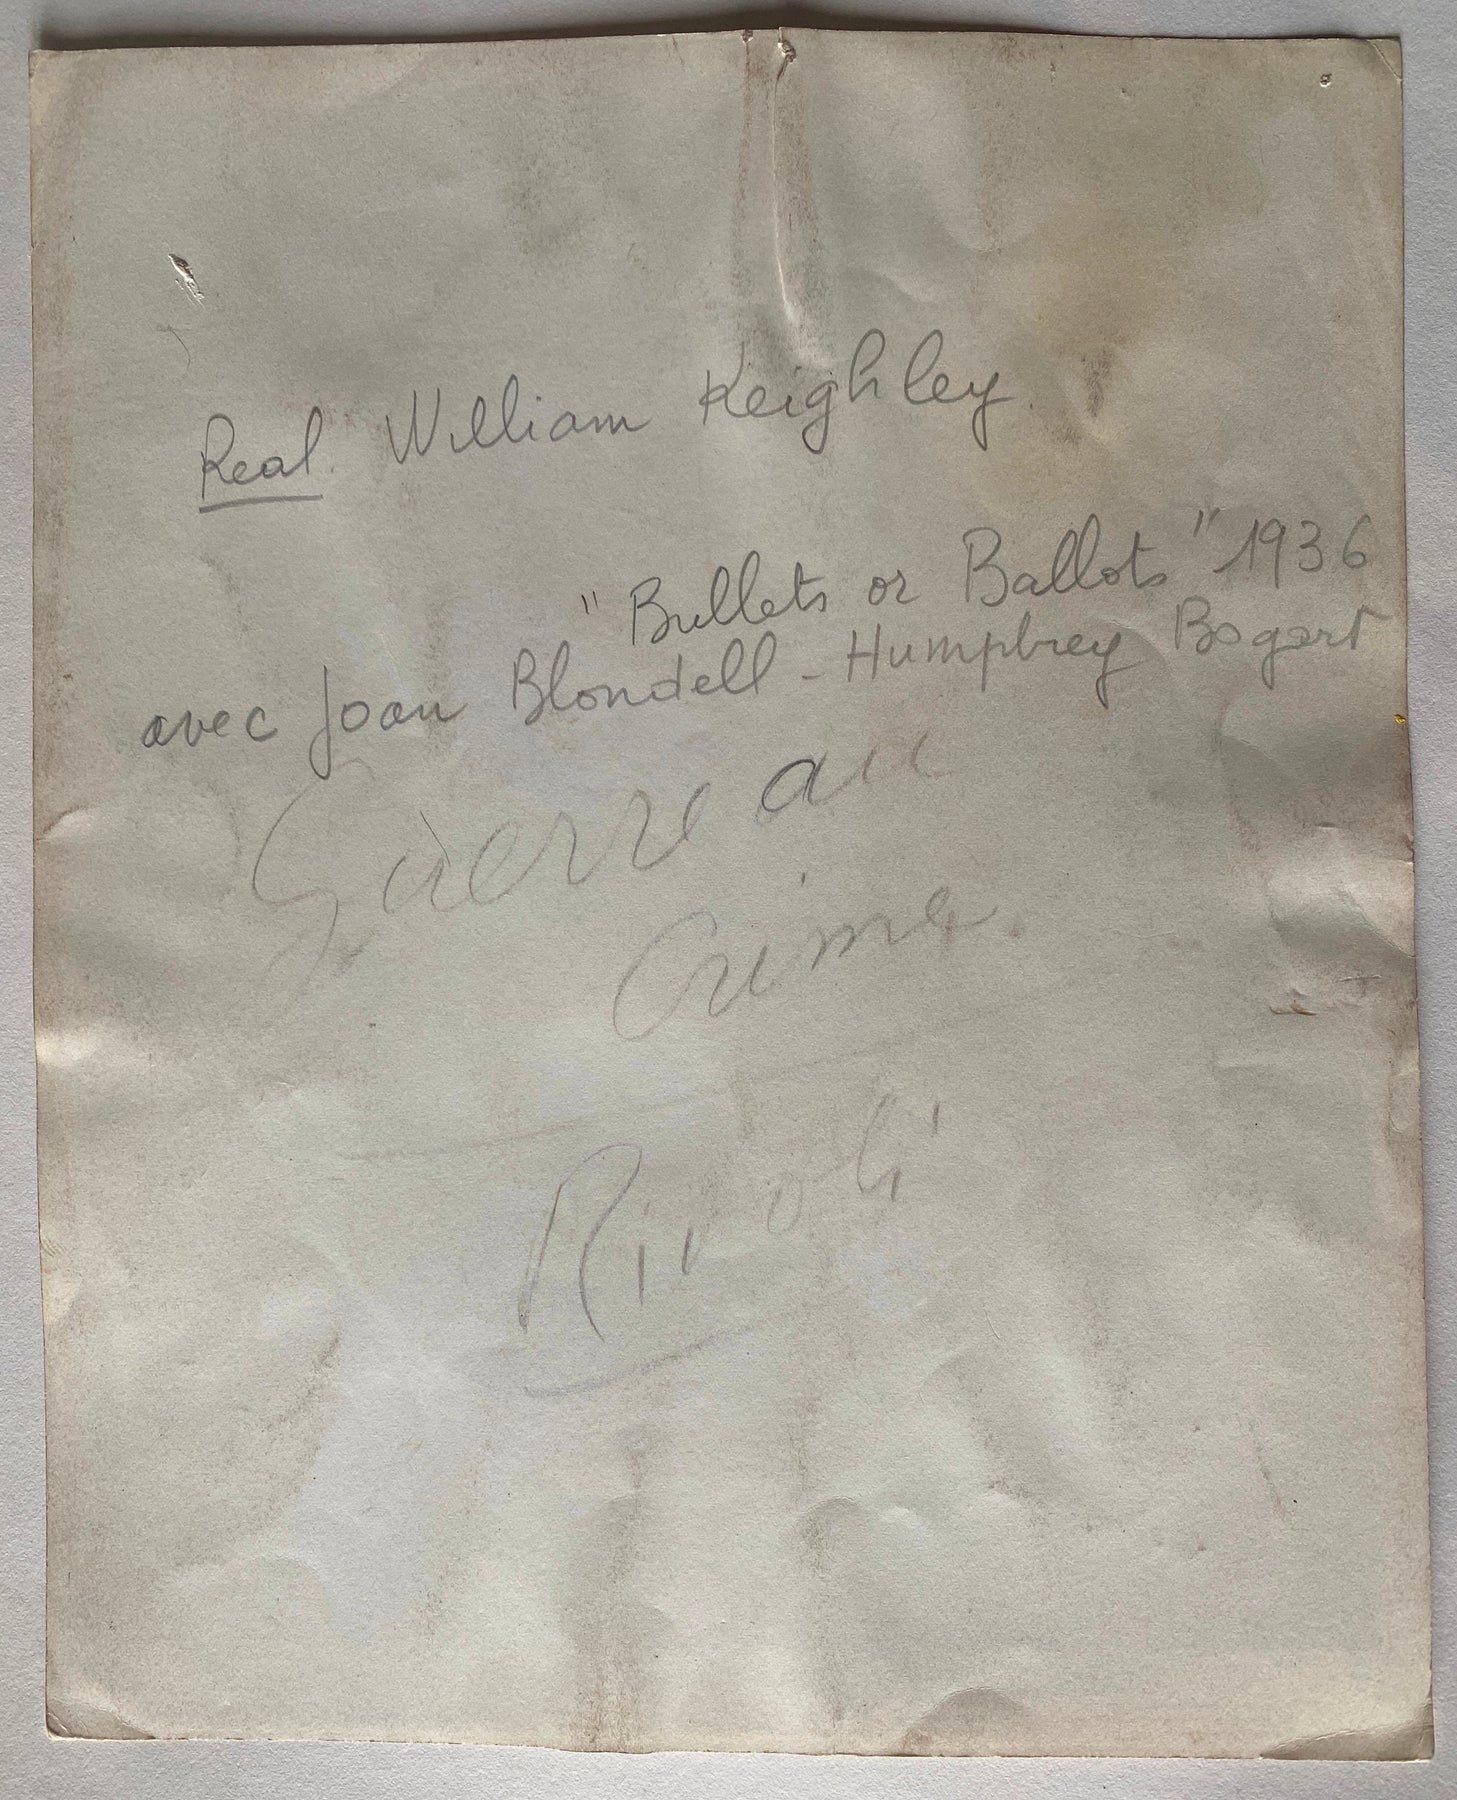 Real. William Keighley.
"Bullets or Ballots" 1936
avec Joan Blondell - Humphrey Bogart
Guerre au
Crime.
Rivoli